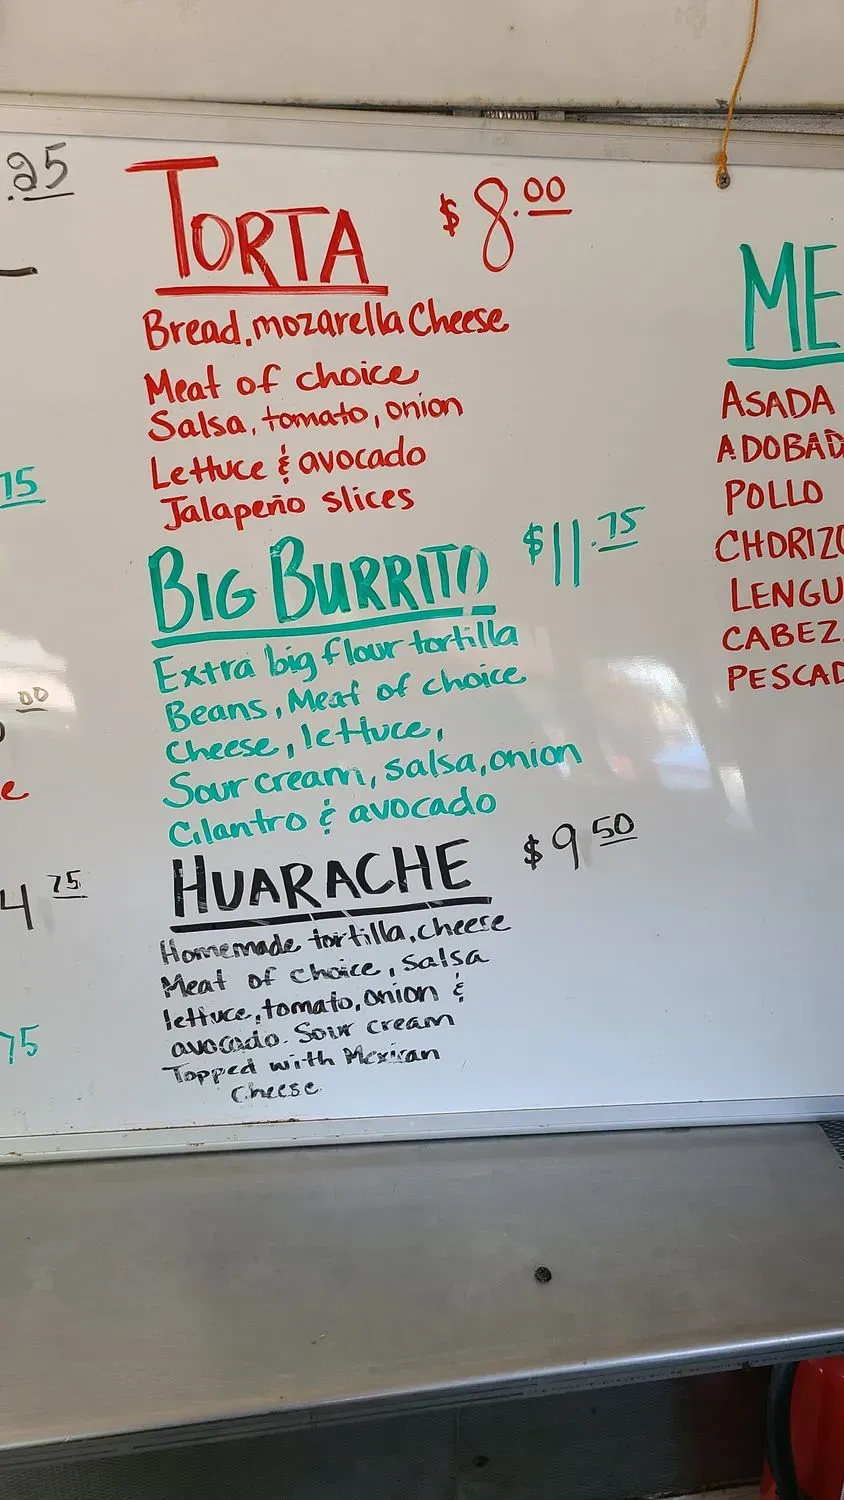 .25
TORTA $8.00
Bread, mozarella Cheese
Meat of choice
Salsa, tomato, onion
Lettuce & avocado
Jalapeño slices
75
BIG BURRITO $11.75
Extra big flour tortilla
Beans, Meat of choice
Cheese, lettuce,
Sour cream, salsa, onion
Cilantro & avocado
00
HUARACHE $9.50
Homemade tortilla, cheese
Meat of choice, Salsa
lettuce, tomato, onion &
avocado. Sour cream
Topped with Mexican
Cheese
4 75
75
ME
ASADA
ADOBAD
POLLO
CHORIZO
LENGU
CABEZ
PESCAD